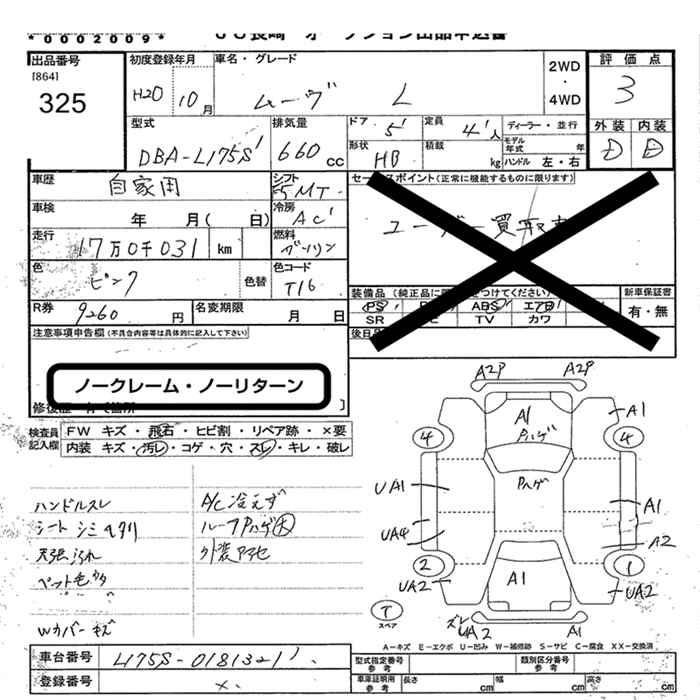 *0002009*
JU長崎 オークション出品申込書
出品番号
[864]
325
初度登録年月
H20 10月
車名・グレード
ムーヴ L
2WD
・
4WD
評価点
3
外装 内装
D E
型式
DBA-L175S
排気量
660cc
ドア 5
定員 4人
形状 HB
積載 kg
ディーラー・並行
モデル年式 年
ハンドル 左・右
車歴
自家用
シフト
F5MT
車検 年 月( 日)
冷房
AC
走行
17万0千031 km
燃料
ガソリン
色
ピンク
色替
色コード
T16
R券
9260円
名変期限 月 日
セールスポイント(正常に機能するものに限ります)
ユーザー買取車
装備品
PS ABS エアB
SR TV カワ
新車保証書
有・無
後日
注意事項申告欄(不具合内容等は具体的に記入して下さい)
ノークレーム・ノーリターン
検査員記入欄
FW キズ・飛石・ヒビ割・リペア跡・×要
内装 キズ・汚レ・コゲ・穴・スレ・キレ・破レ
ハンドルスレ
シート シミ ヘタリ
天張汚れ
Wカバーキズ
A/C冷えず
ルーフPハゲ大
A2P A2P
A1 A1
Pハゲ
4 4
Pハゲ
UA1 A1
UA4 A2
2 1
UA2 A1 UA2
T
スペア
ズレ
UA2 A1
A-キズ E-エクボ U-凹み W-補修跡 S-サビ C-腐食 XX-交換済
車台番号
L175S-0181321
登録番号
×
型式指定番号
参考
類別区分番号
参考
車庫証明用
参考
長さ cm 幅 cm 高さ cm